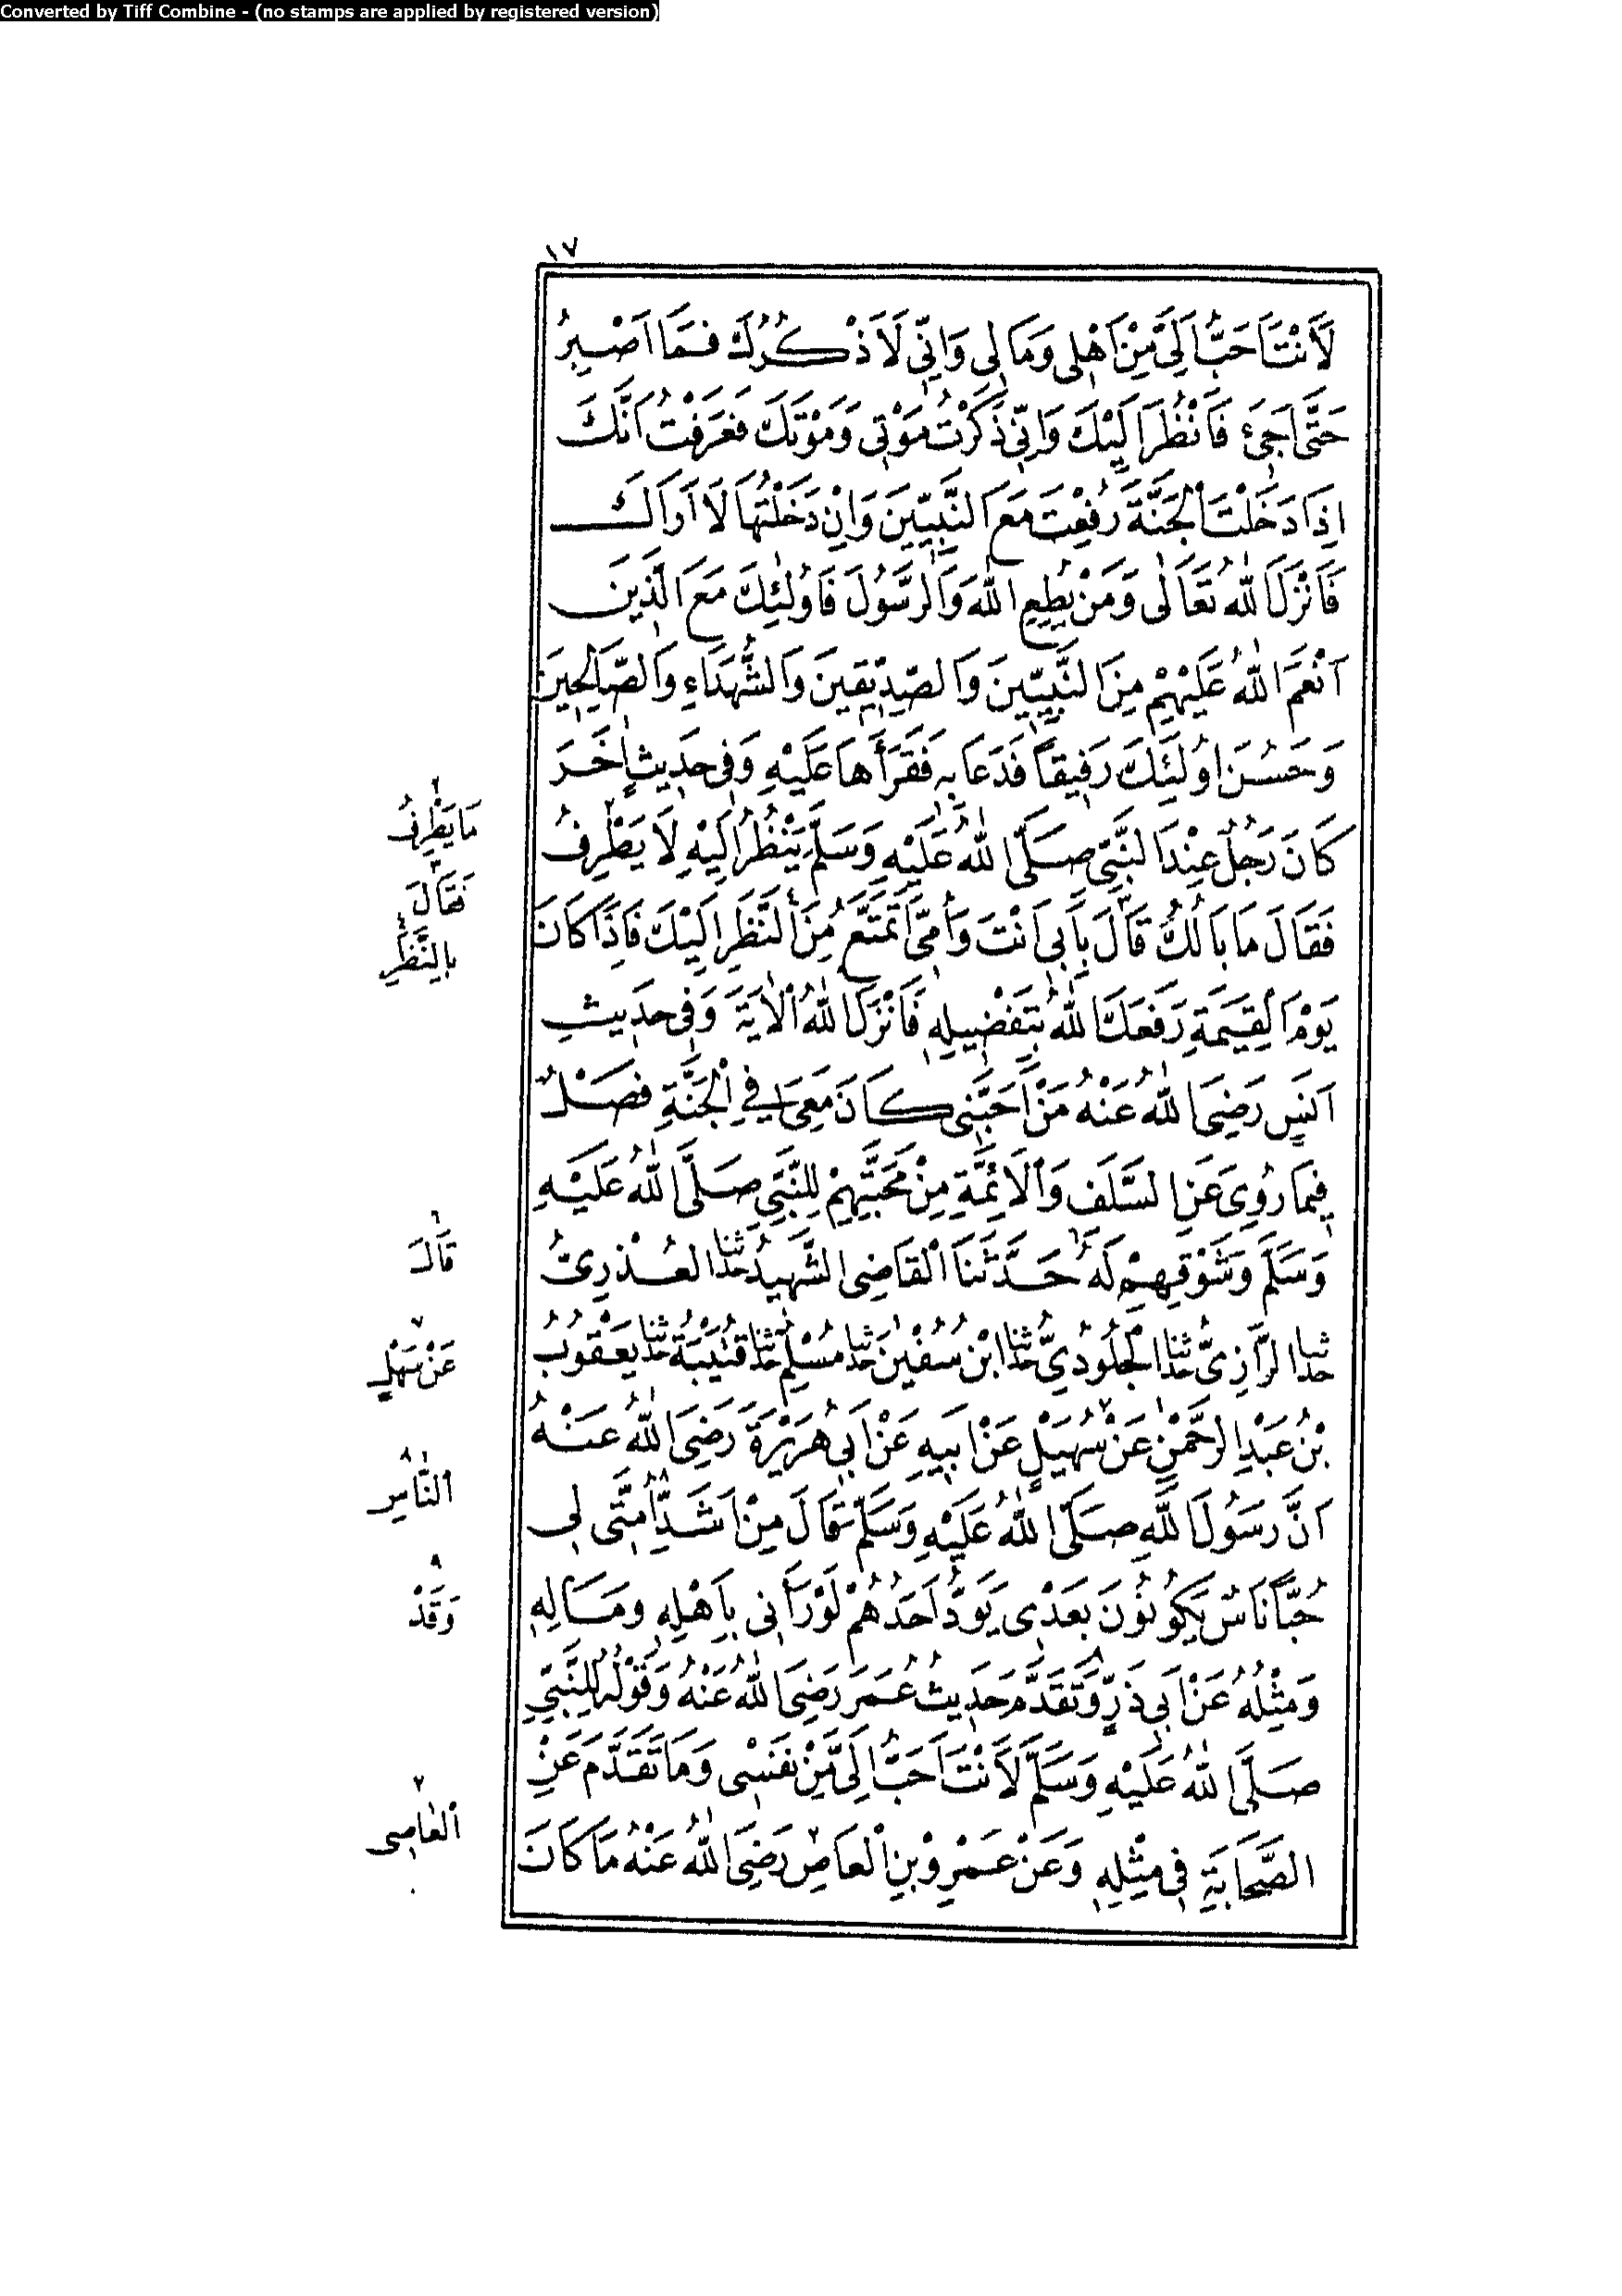 Converted by Tiff Combine - (no stamps are applied by registered version)
١٧
لَأَنْتَ اَحَبُّ اِلَيَّ مِنْ اَهْلِى وَمَالِى وَاِنِّى لَاَذْكُرُكَ فَمَا اَصْبِرُ
حَتَّى اَجِئَ فَاَنْظُرَ اِلَيْكَ وَاِنِّى ذَكَرْتُ مَوْتِى وَمَوْتَكَ فَعَرَفْتُ اَنَّكَ
اِذَا دَخَلْتَ الْجَنَّةَ رُفِعْتَ مَعَ النَّبِيِّينَ وَاِنْ دَخَلْتُهَا لَا اَرَاكَ
فَاَنْزَلَ اللّٰهُ تَعَالٰى وَمَنْ يُطِعِ اللّٰهَ وَالرَّسُولَ فَاُولٰئِكَ مَعَ الَّذِينَ
اَنْعَمَ اللّٰهُ عَلَيْهِمْ مِنَ النَّبِيِّينَ وَالصِّدِّيقِينَ وَالشُّهَدَاءِ وَالصَّالِحِينَ
وَحَسُنَ اُولٰئِكَ رَفِيقًا فَدَعَا بِهِ فَقَرَأَهَا عَلَيْهِ وَفِى حَدِيثٍ اٰخَرَ
كَانَ رَجُلٌ عِنْدَ النَّبِيِّ صَلَّى اللّٰهُ عَلَيْهِ وَسَلَّمَ يَنْظُرُ اِلَيْهِ لَا يَطْرِفُ
فَقَالَ مَا بَالُكَ قَالَ بِاَبِى اَنْتَ وَاُمِّى اَتَمَتَّعُ مِنَ النَّظَرِ اِلَيْكَ فَاِذَا كَانَ
يَوْمُ الْقِيٰمَةِ رَفَعَكَ اللّٰهُ بِتَفْضِيلِهِ فَاَنْزَلَ اللّٰهُ الْاٰيَةَ وَفِى حَدِيثِ
اَنَسٍ رَضِىَ اللّٰهُ عَنْهُ مَنْ اَحَبَّنِى كَانَ مَعِىَ فِى الْجَنَّةِ فَصْلٌ
فِيمَا رُوِىَ عَنِ السَّلَفِ وَالْاَئِمَّةِ مِنْ مَحَبَّتِهِمْ لِلنَّبِيِّ صَلَّى اللّٰهُ عَلَيْهِ
وَسَلَّمَ وَشَوْقِهِمْ لَهُ ٦ حَدَّثَنَا الْقَاضِى الشَّهِيدُ حَدَّثَنَا الْعُذْرِىُّ
حَدَّثَنَا الرَّازِىُّ حَدَّثَنَا الْجُلُودِىُّ حَدَّثَنَا ابْنُ سُفْيٰنَ حَدَّثَنَا مُسْلِمٌ حَدَّثَنَا قُتَيْبَةُ حَدَّثَنَا يَعْقُوبُ
بْنُ عَبْدِ الرَّحْمٰنِ عَنْ سُهَيْلٍ عَنْ اَبِيهِ عَنْ اَبِى هُرَيْرَةَ رَضِىَ اللّٰهُ عَنْهُ
اَنَّ رَسُولَ اللّٰهِ صَلَّى اللّٰهُ عَلَيْهِ وَسَلَّمَ قَالَ مِنْ اَشَدِّ اُمَّتِى لِى
حُبًّا نَاسٌ يَكُونُونَ بَعْدِى يَوَدُّ اَحَدُهُمْ لَوْ رَاٰنِى بِاَهْلِهِ وَمَالِهِ
وَمِثْلُهُ عَنْ اَبِى ذَرٍّ وَتَقَدَّمَ حَدِيثُ عُمَرَ رَضِىَ اللّٰهُ عَنْهُ وَقَوْلُهُ لِلنَّبِيِّ
صَلَّى اللّٰهُ عَلَيْهِ وَسَلَّمَ لَاَنْتَ اَحَبُّ اِلَيَّ مِنْ نَفْسِى وَمَا تَقَدَّمَ عَنِ
الصَّحَابَةِ فِى مِثْلِهِ وَعَنْ عَمْرِو بْنِ الْعَاصِ رَضِىَ اللّٰهُ عَنْهُ مَا كَانَ
٢ مَا يَطْرِفُ
٣ فَقَالَ
٤ بِالنَّظَرِ
٦ قَالَ
٧ عَنْ سَهْلٍ
٨ النَّاسِ
٩ وَقَدْ
٢ الْعَاصِى